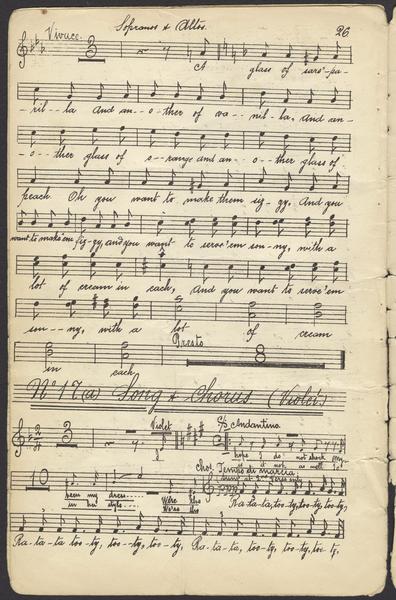 Sopranos & Altos.
26
Vivace.
3
A glass of sars'-pa-
-ril--la And an--o-ther of va--nil-la, And an-
-o--ther glass of o--range and an--o--ther glass of
peach Oh you want to make them sig-gy, And you
want to make 'em fig-gy, and you want to serve 'em son-ny, with a
lot of cream in each, And you want to serve 'em
son---ny, with a lot of cream
Presto
8
in each
No 17(a) Song & Chorus (Violet)
3
Violet
Andantino
hope I do not shock
10
Chor. Tempo di marcia.
seen my dress----
in her style----
Were this
Ra-ta-ta, too-ty, too-ty, too-ty,
Ra-ta-ta too-ty, too-ty, too-ty Ra-ta-ta, too-ty, too-ty, too-ty.